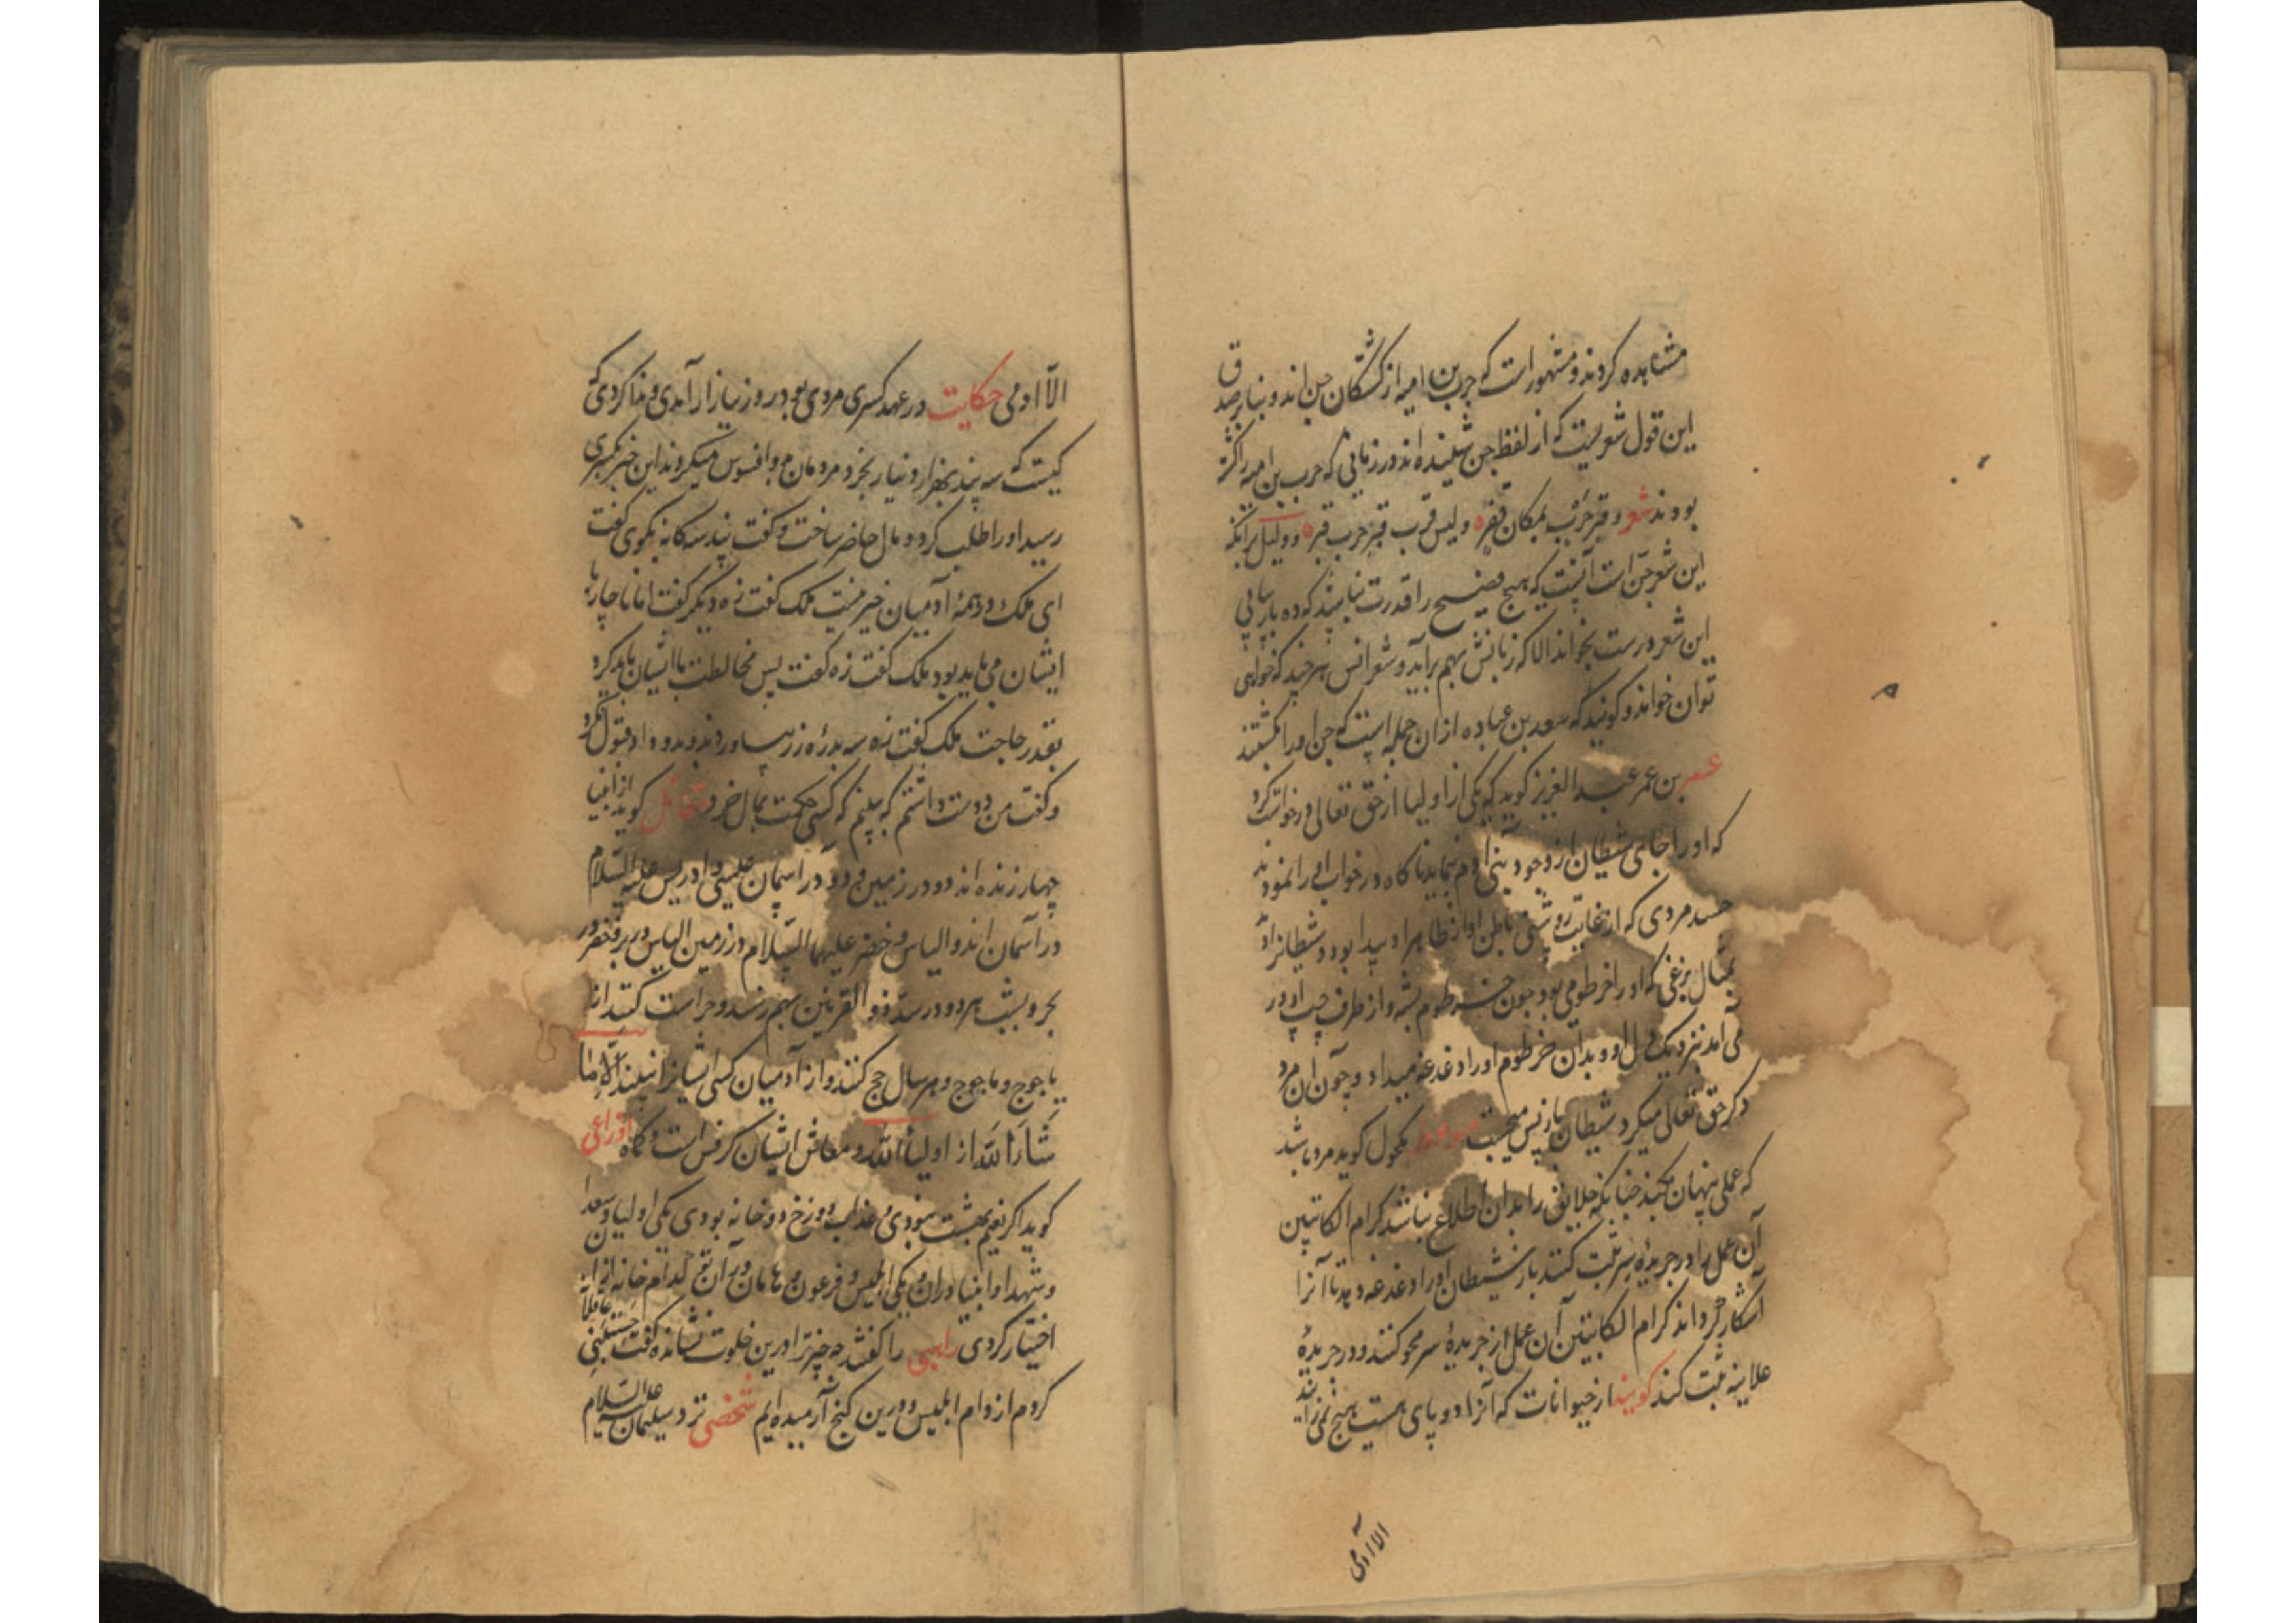 مشاهده کردند و مشهور است که حرب بن امیه از کشتگان جن اند و بنابر صدق
این قول شعریست که از لفظ جن شنیده اند در زمانی که حرب بن امیه را کشته
بودند شعر و قبر حرب بمکان قفره ولیس قرب قبر حرب قبره و دلیل برآنکه
این شعر جن است آنست که هیچ فصیح را قدرت نباشد که ده بار پیاپی
این شعر درست بخواند الا که زبانش بهم برآید و شعر انس هر چند که خواهی
توان خواند و گویند که سعد بن عباده از ان جمله است که جن او را بکشتند
عمر بن عمر عبد العزیز گوید که یکی از اولیا از حق تعالی درخواست کرد
که او را جای شیطان از وجود بنی ادم نماید ناگاه در خواب او را نمودند
جسد مردی که از غایت روشنی باطن او از ظاهر او پیدا بود و شیطانرا دید
بمثال بزغی که او را خرطومی بود چون خرطوم پشه و از طرف چپ او در
می آمد نزدیک دل او و بدان خرطوم او را دغدغه میداد و چون آن مرد
ذکر حق تعالی میکرد شیطان باز پس میجست مکحول گوید مرد باشد
که عملی پنهان بکند چنانکه خلایق را بدان اطلاع نباشد کرام الکاتبین
آن عمل را در جریدهٔ سر ثبت کنند باز شیطان او را دغدغه دهد تا آنرا
آشکار گرداند کرام الکاتبین آن عمل از جریدهٔ سر محو کنند و در جریدهٔ
علانیه ثبت کنند گویند از حیوانات که آنرا دو پای هست هیچ نمی زاید
الا آدمی
الا ادمی حکایت در عهد کسری مردی بود در روز ببازار آمدی و ندا کردی که
کیست که سه پند بهزار دینار بخرد و مردمان برو افسوس میکردند این خبر بکسری
رسید او را طلب کرد و مال حاضر ساخت و گفت پند سه گانه بگوی گفت
ای ملک در همهٔ آدمیان خیر نیست ملک گفت زه دیگر گفت اما ناچار با
ایشان می باید بود ملک گفت زه گفت پس مخالطت با ایشان باید کرد
بقدر حاجت ملک گفت زه سه بدرهٔ زر بیاوردند و بدو داد قبول نکرد
و گفت من دوست داشتم که ببینم که کسی حکمت بمال خرد گوید از انبیا
چهار زنده اند دو در زمین و دو در اسمان عیسی و ادریس علیه السلام
در آسمان اند و الیاس و خضر علیهما السلام در زمین الیاس در بر و خضر در
بحر و بشب هر دو در سد ذو القرنین بهم رسند و حراست کنند از
یاجوج و ماجوج و هر سال حج کنند و از آدمیان کسی ایشانرا نبیند الا ما
شاء الله از اولیاء الله و معاش ایشان کرفس است و کماه اوزاعی
گوید اگر نعیم بهشت نبودی و عذاب دوزخ دو خانه بودی یکی اولیا و سعدا
و شهدا و انبیا دران و یکی ابلیس و فرعون و هامان در آن تو کدام خانه از این
اختیار کردی راهبی را گفتند چه چیز ترا درین خلوت نشانده گفت
کردم از دام ابلیس و درین کنج آرمیده ایم شخصی نزد سلیمان علیه السلام